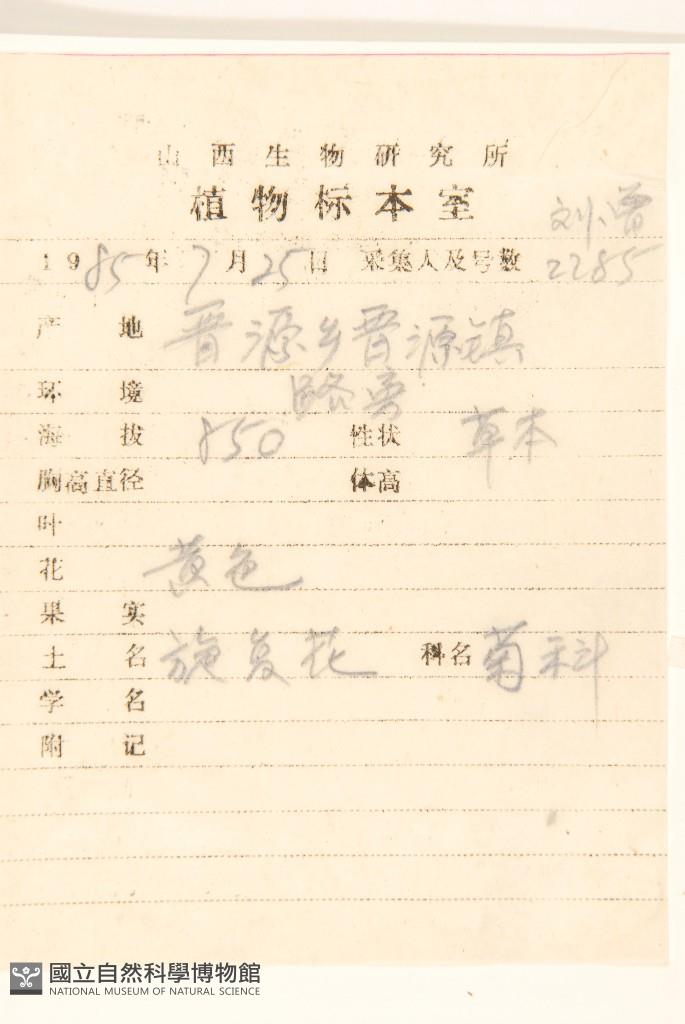 山西生物研究所
植物标本室
刘 曾
1985年7月25日 采集人及号数 2285
产地 晋源乡晋源镇
环境 路旁
海拔 850 性状 草本
胸高直径 体高
叶
花 黄色
果实
土名 旋复花 科名 菊科
学名
附记
國立自然科學博物館
NATIONAL MUSEUM OF NATURAL SCIENCE